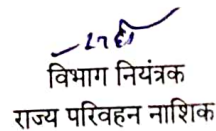 विभाग नियंत्रक
राज्य परिवहन नाशिक